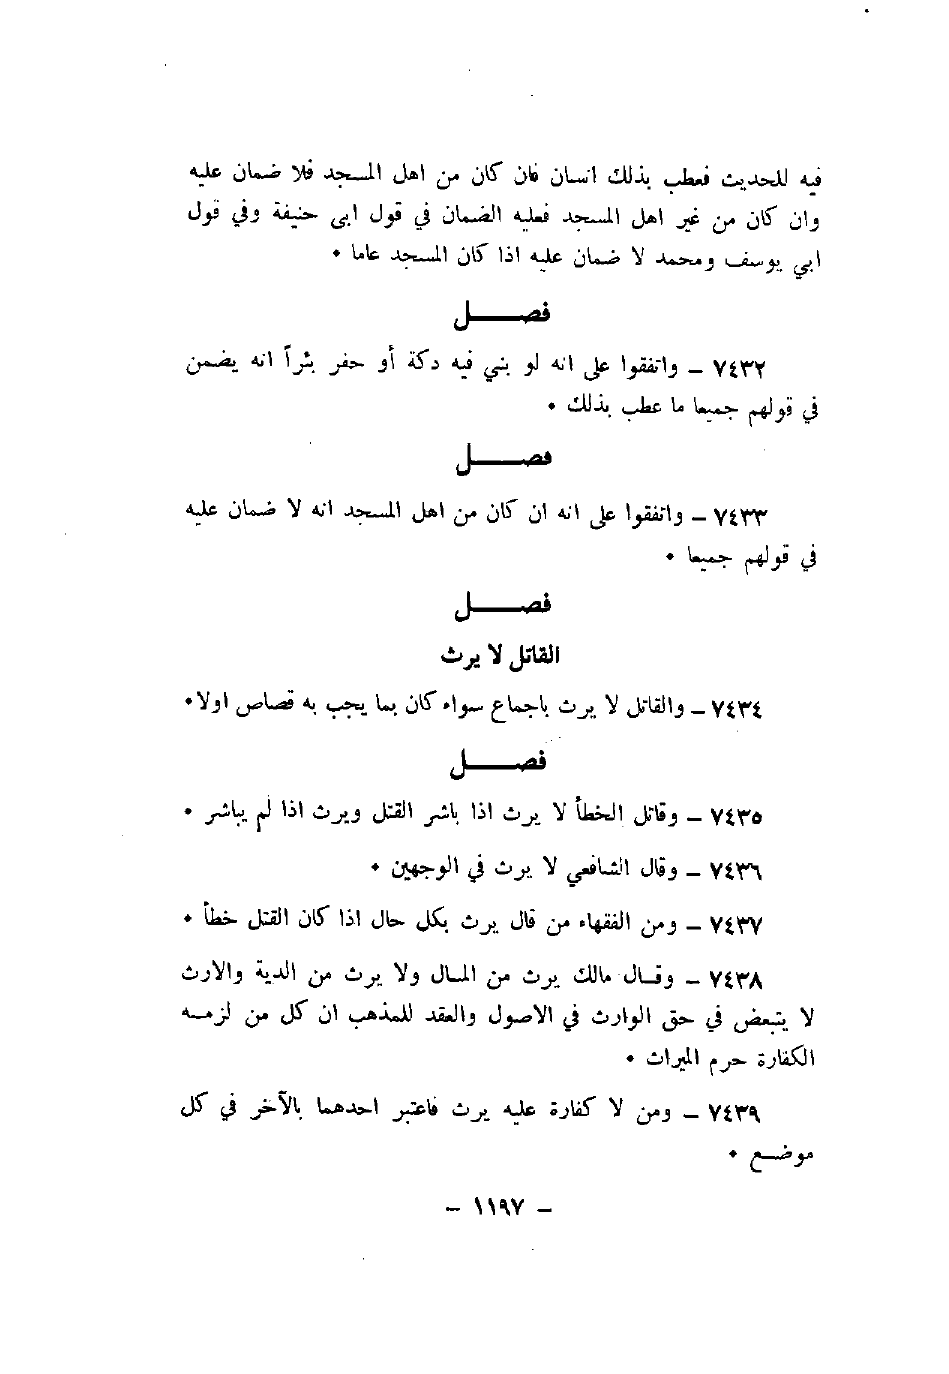 فيه للحديث فعطب بذلك انسان فان كان من اهل المسجد فلا ضمان عليه
وان كان من غير اهل المسجد فعليه الضمان في قول ابى حنيفة وفي قول
ابي يوسف ومحمد لا ضمان عليه اذا كان المسجد عاما •
فصــــل
٧٤٣٢ – واتفقوا على انه لو بني فيه دكة أو حفر بئراً انه يضمن
في قولهم جميعا ما عطب بذلك •
فصــــل
٧٤٣٣ – واتفقوا على انه ان كان من اهل المسجد انه لا ضمان عليه
في قولهم جميعا •
فصــــل
القاتل لا يرث
٧٤٣٤ – والقاتل لا يرث باجماع سواء كان بما يجب به قصاص اولا•
فصــــل
٧٤٣٥ – وقاتل الخطأ لا يرث اذا باشر القتل ويرث اذا لم يباشر •
٧٤٣٦ – وقال الشافعي لا يرث في الوجهين •
٧٤٣٧ – ومن الفقهاء من قال يرث بكل حال اذا كان القتل خطأ •
٧٤٣٨ – وقــال مالك يرث من المــال ولا يرث من الدية والارث
لا يتبعض في حق الوارث في الاصول والعقد للمذهب ان كل من لزمــه
الكفارة حرم الميراث •
٧٤٣٩ – ومن لا كفارة عليه يرث فاعتبر احدهما بالآخر في كل
موضــع •
– ١١٩٧ –